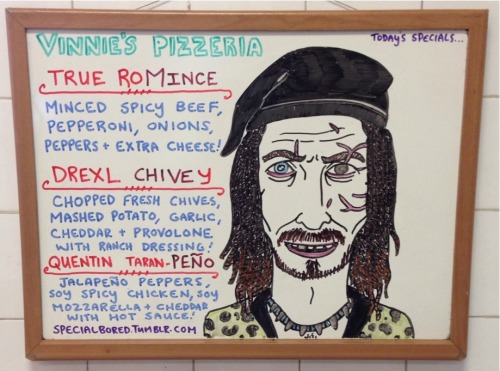 VINNIE'S PIZZERIA
TODAYS SPECIALS...
TRUE ROMINCE
MINCED SPICY BEEF,
PEPPERONI, ONIONS,
PEPPERS + EXTRA CHEESE!
DREXL CHIVEY
CHOPPED FRESH CHIVES,
MASHED POTATO, GARLIC,
CHEDDAR + PROVOLONE
WITH RANCH DRESSING!
QUENTIN TARAN-PEÑO
JALAPEÑO PEPPERS,
SOY SPICY CHICKEN, SOY
MOZZARELLA + CHEDDAR
WITH HOT SAUCE!
SPECIALBORED.TUMBLR.COM